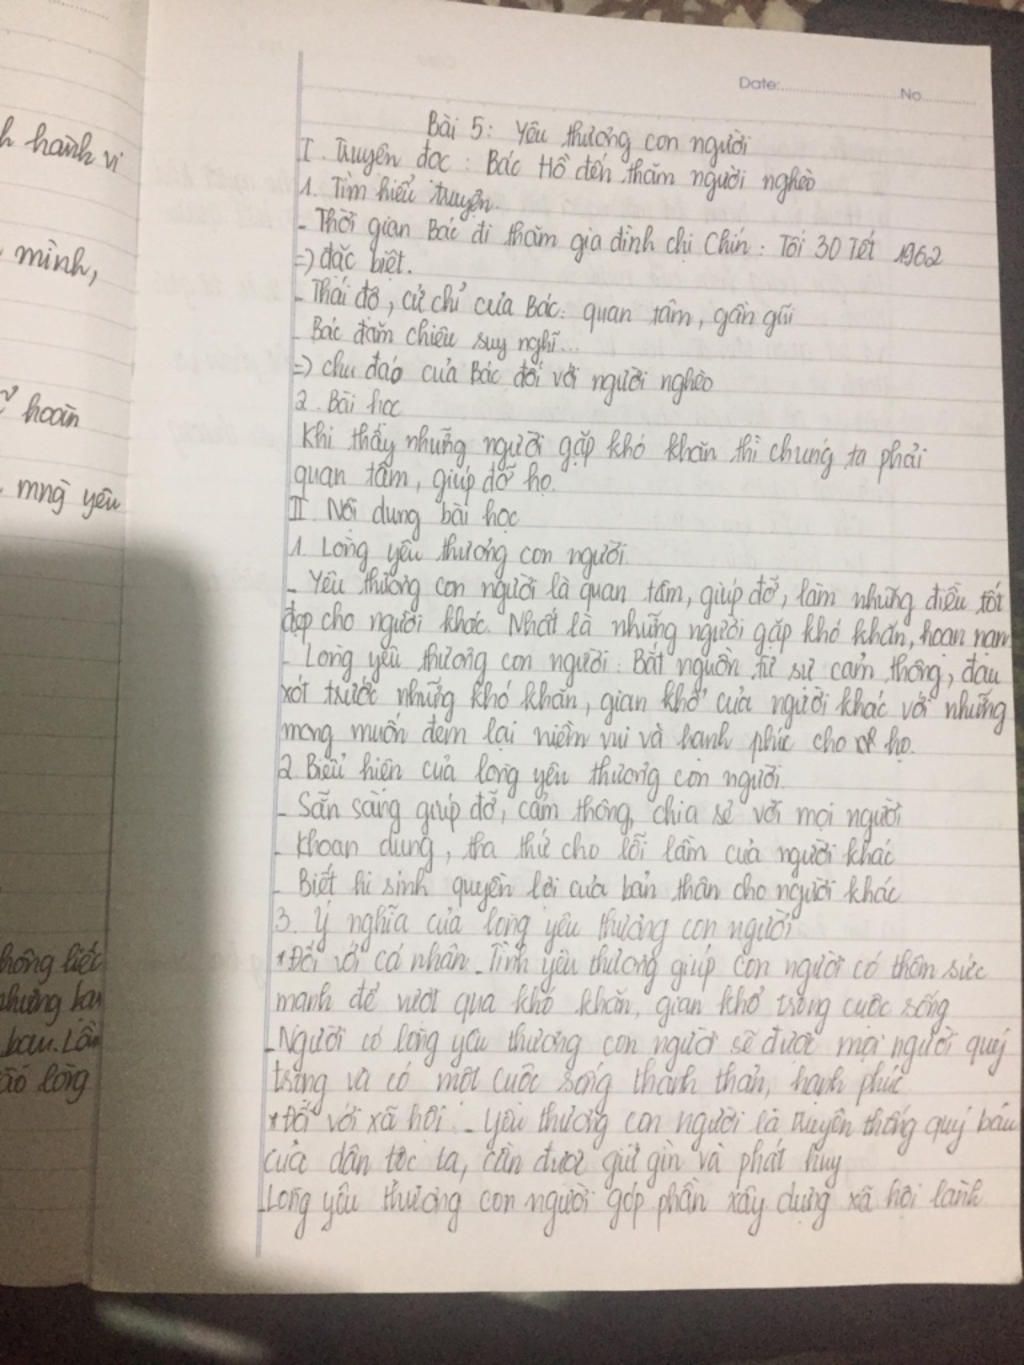 Date: No
Bài 5: Yêu thương con người
I. Truyện đọc: Bác Hồ đến thăm người nghèo
1. Tìm hiểu truyện.
- Thời gian Bác đi thăm gia đình chị Chín: Tối 30 Tết 1962
=> đặc biệt.
- Thái độ, cử chỉ của Bác: quan tâm, gần gũi
- Bác đăm chiêu suy nghĩ...
=> chu đáo của Bác đối với người nghèo
2. Bài học
Khi thấy những người gặp khó khăn thì chúng ta phải
quan tâm, giúp đỡ họ.
II. Nội dung bài học
1. Lòng yêu thương con người
- Yêu thương con người là quan tâm, giúp đỡ, làm những điều tốt
đẹp cho người khác. Nhất là những người gặp khó khăn, hoạn nạn
- Lòng yêu thương con người: Bắt nguồn từ sự cảm thông, đau
xót trước những khó khăn, gian khổ của người khác với những
mong muốn đem lại niềm vui và hạnh phúc cho họ.
2. Biểu hiện của lòng yêu thương con người.
- Sẵn sàng giúp đỡ, cảm thông, chia sẻ với mọi người
- Khoan dung, tha thứ cho lỗi lầm của người khác
- Biết hi sinh quyền lợi của bản thân cho người khác
3. Ý nghĩa của lòng yêu thương con người
* Đối với cá nhân - Tình yêu thương giúp con người có thêm sức
mạnh để vượt qua khó khăn, gian khổ trong cuộc sống
- Người có lòng yêu thương con người sẽ được mọi người quý
trọng và có một cuộc sống thanh thản, hạnh phúc
* Đối với xã hội: - Yêu thương con người là truyền thống quý báu
của dân tộc ta, cần được giữ gìn và phát huy
Lòng yêu thương con người góp phần xây dựng xã hội lành
hành vi
mình,
hoàn
mng yêu
lòng